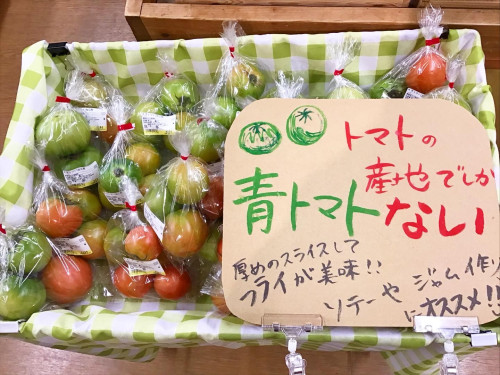 トマトの
産地でしか
青トマトない
厚めのスライスして
フライが美味!!
ソテーや ジャム作り
にオススメ!!